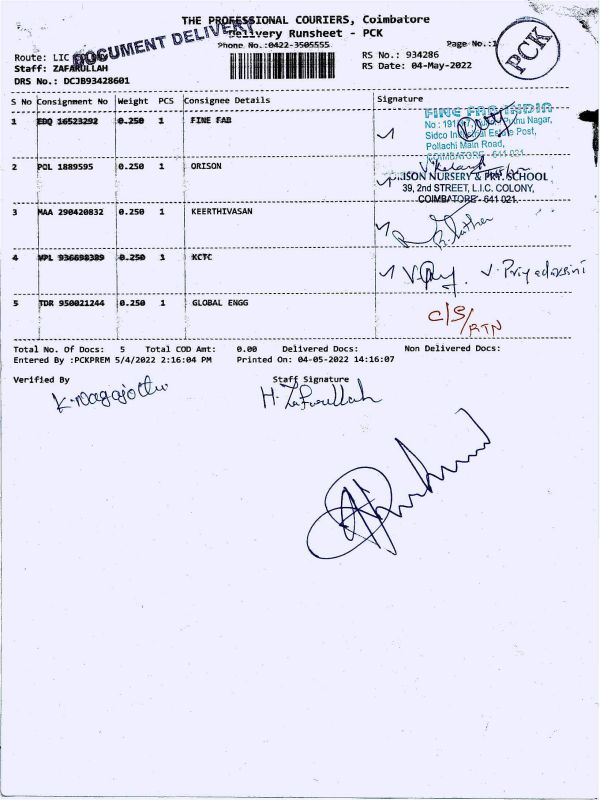 THE PROFESSIONAL COURIERS, Coimbatore
Delivery Runsheet - PCK
DOCUMENT DELIVERY
Phone No.:0422-3505555
Page No.:1
PCK
Route: LIC
Staff: ZAFARULLAH
DRS No.: DCJB93428601
RS No.: 934286
RS Date: 04-May-2022
S No Consignment No Weight PCS Consignee Details Signature
1 EDQ 16523292 0.250 1 FINE FAB
FINE FAB INDIA
Nagar,
Sidco Industrial Estate Post,
Pollachi Main Road,
COIMBATORE - 641 021.
2 POL 1889595 0.250 1 ORISON
ORISON NURSERY & PRY. SCHOOL
39, 2nd STREET, L.I.C. COLONY,
COIMBATORE - 641 021.
3 MAA 290420832 0.250 1 KEERTHIVASAN
4 VPL 936698389 0.250 1 KCTC
V. Priyadarsini
5 TDR 950021244 0.250 1 GLOBAL ENGG
C/S/
RTN
Total No. Of Docs: 5 Total COD Amt: 0.00 Delivered Docs: Non Delivered Docs:
Entered By :PCKPREM 5/4/2022 2:16:04 PM Printed On: 04-05-2022 14:16:07
Verified By Staff Signature
H. Zafarullah